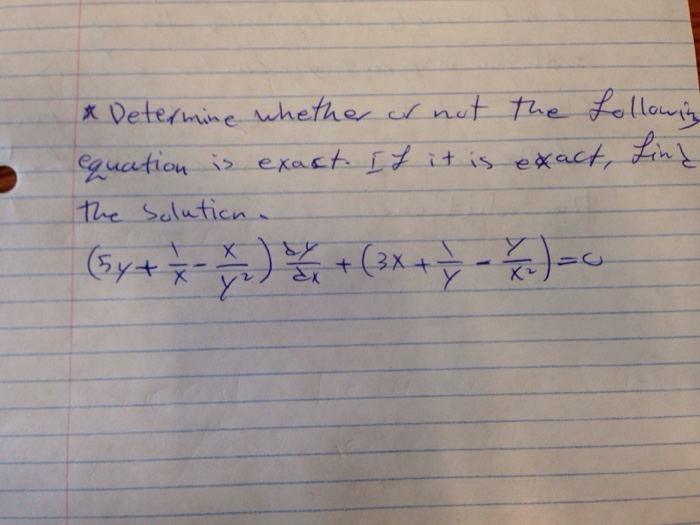 * Determine whether or not the following
equation is exact. If it is exact, find
the solution.
(5y + 1/x - x/y²) dy/dx + (3x + 1/y - y/x²) = 0